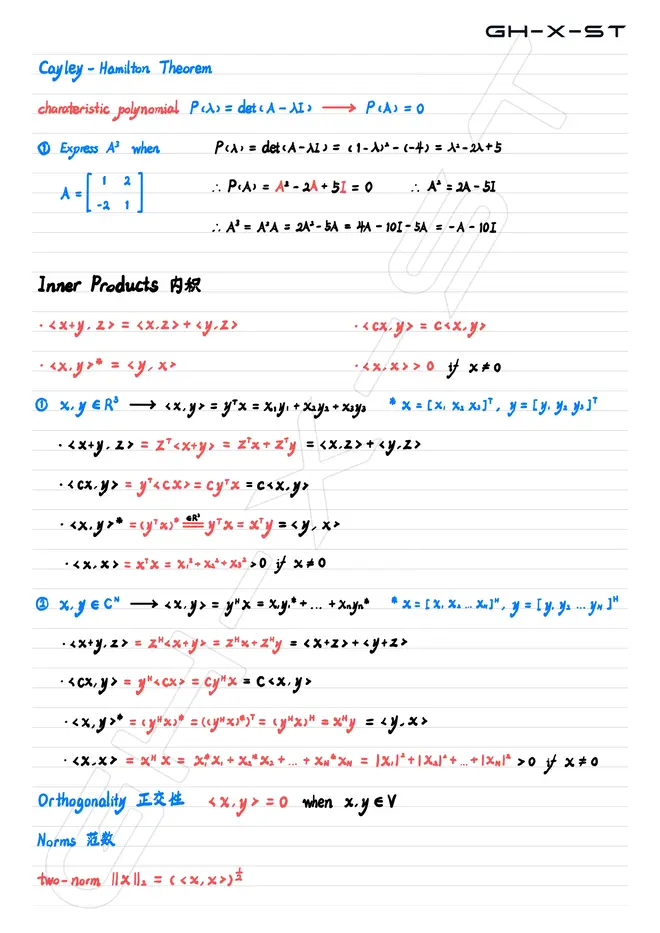 GH-X-ST
Cayley-Hamilton Theorem
charateristic polynomial P(λ) = det(A - λI) ⟶ P(A) = 0
① Express A³ when P(λ) = det(A - λI) = (1 - λ)² - (-4) = λ² - 2λ + 5
A = [ 1 2 ; -2 1 ] ∴ P(A) = A² - 2A + 5I = 0 ∴ A² = 2A - 5I
∴ A³ = A²A = 2A² - 5A = 4A - 10I - 5A = -A - 10I
Inner Products 内积
· <x+y, z> = <x,z> + <y,z> · <cx, y> = c<x, y>
· <x, y>* = <y, x> · <x, x> > 0 if x ≠ 0
① x, y ∈ R³ ⟶ <x, y> = yᵀx = x₁y₁ + x₂y₂ + x₃y₃ * x = [x₁ x₂ x₃]ᵀ, y = [y₁ y₂ y₃]ᵀ
· <x+y, z> = zᵀ<x+y> = zᵀx + zᵀy = <x,z> + <y,z>
· <cx, y> = yᵀ<cx> = cyᵀx = c<x, y>
· <x, y>* = (yᵀx)* =(∈R³) yᵀx = xᵀy = <y, x>
· <x, x> = xᵀx = x₁² + x₂² + x₃² > 0 if x ≠ 0
② x, y ∈ Cᴺ ⟶ <x, y> = yᴴx = x₁y₁* + ... + xₙyₙ* * x = [x₁ x₂ ... x_N]ᴴ, y = [y₁ y₂ ... y_N]ᴴ
· <x+y, z> = zᴴ<x+y> = zᴴx + zᴴy = <x+z> + <y+z>
· <cx, y> = yᴴ<cx> = cyᴴx = c<x, y>
· <x, y>* = (yᴴx)* = ((yᴴx)*)ᵀ = (yᴴx)ᴴ = xᴴy = <y, x>
· <x, x> = xᴴx = x₁*x₁ + x₂*x₂ + ... + x_N*x_N = |x₁|² + |x₂|² + ... + |x_N|² > 0 if x ≠ 0
Orthogonality 正交性 <x, y> = 0 when x, y ∈ V
Norms 范数
two-norm ||x||₂ = (<x, x>)^½
GH-X-ST